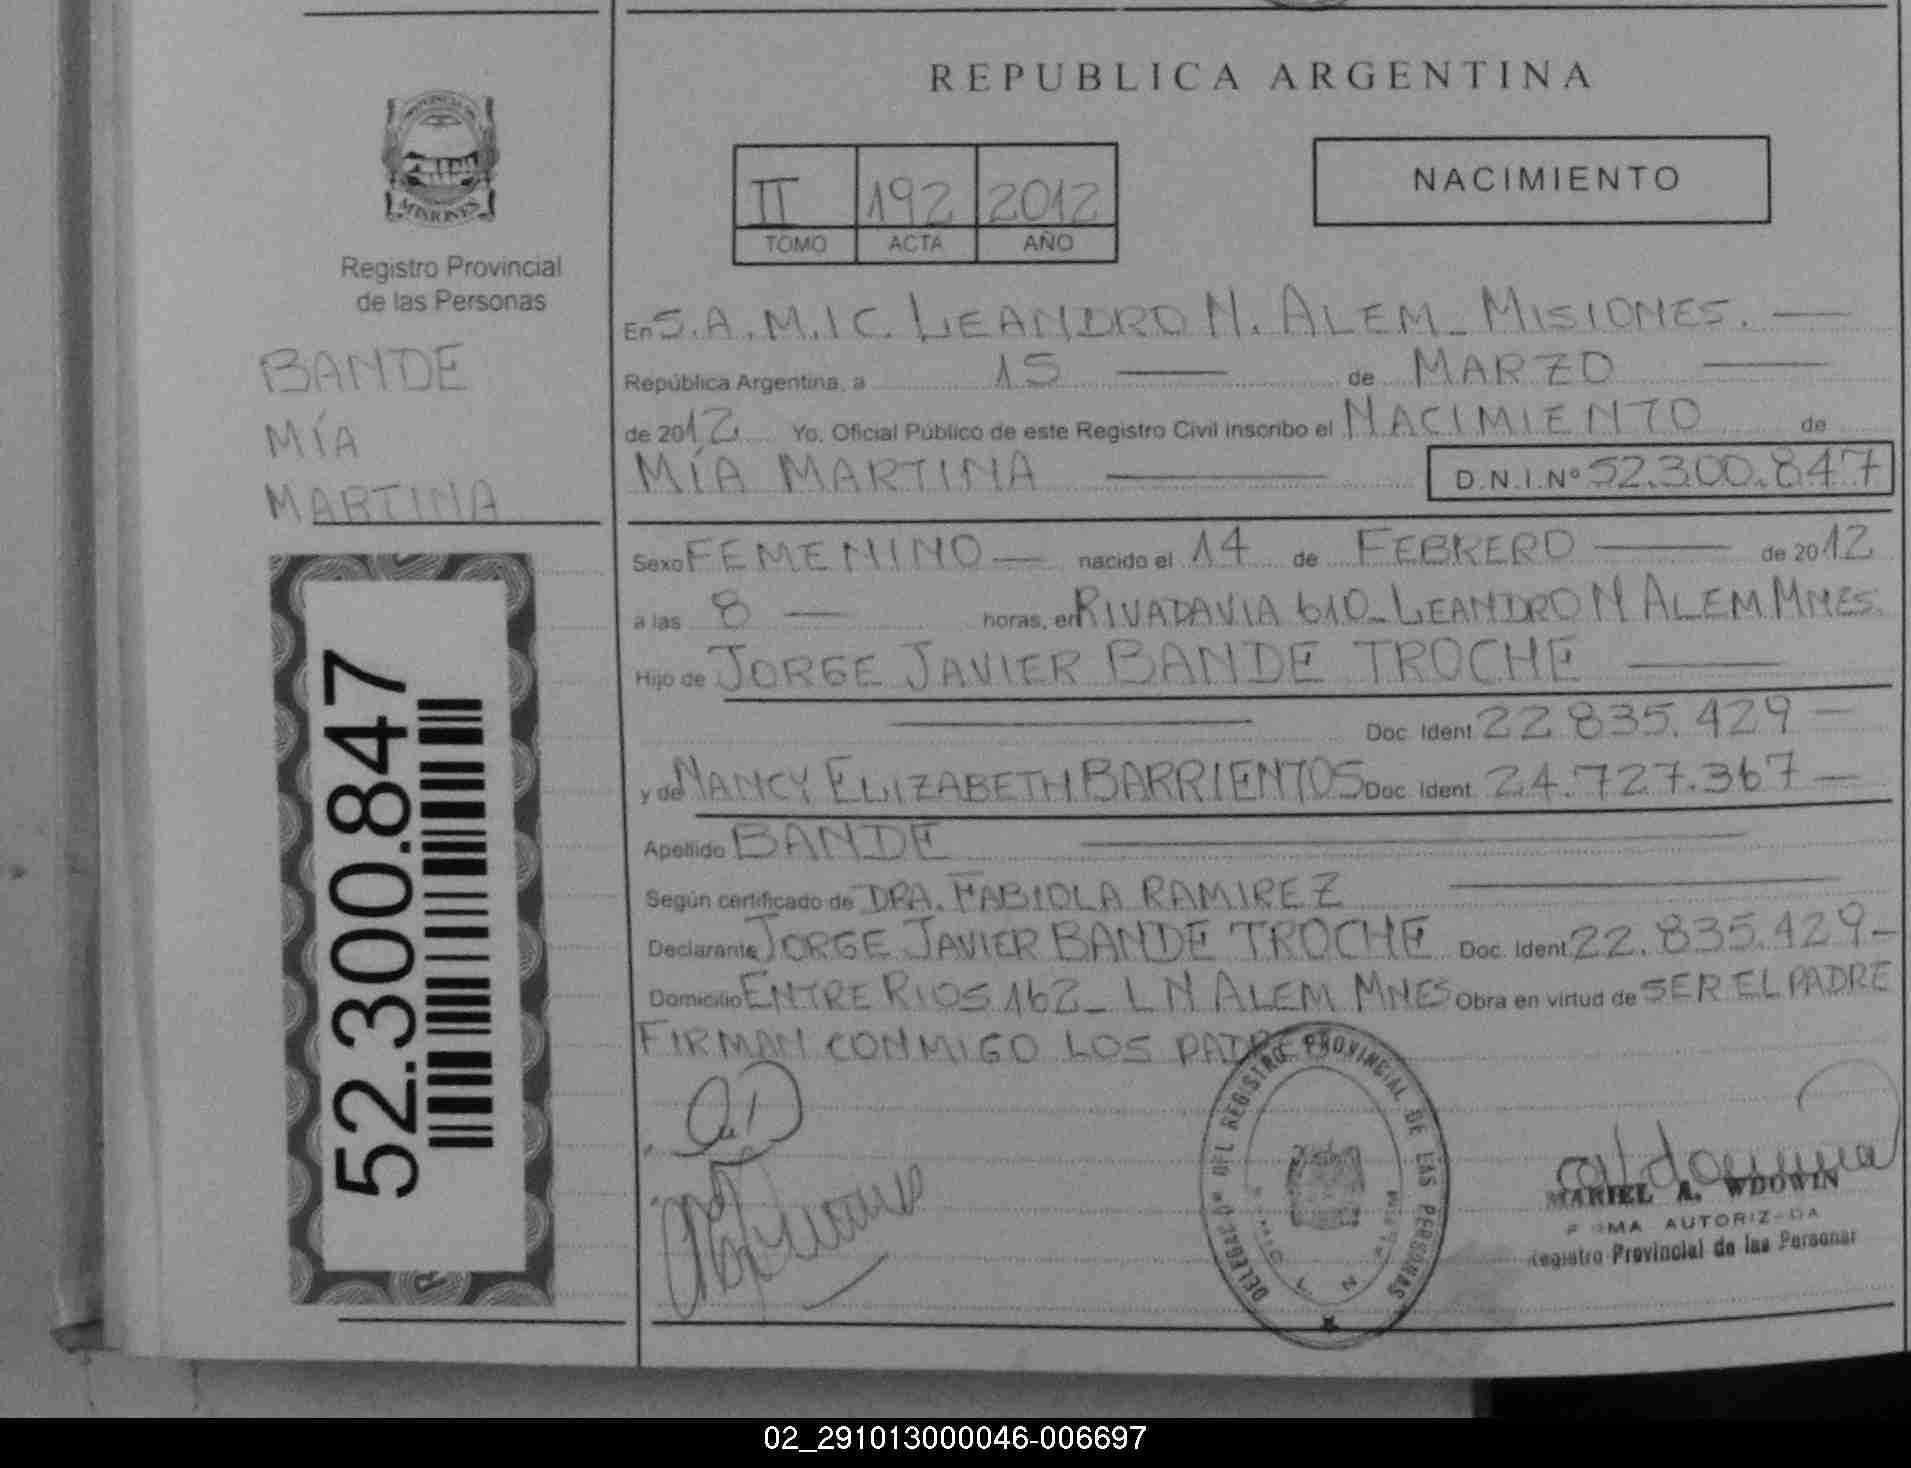 REPUBLICA ARGENTINA
PROVINCIA DE
MISIONES
Registro Provincial
de las Personas
II 192 2012
TOMO ACTA AÑO
NACIMIENTO
BANDE
MÍA
MARTINA
En S.A.M.I C. LEANDRO N. ALEM_ MISIONES.
República Argentina, a 15 de MARZO
de 2012 Yo, Oficial Público de este Registro Civil inscribo el NACIMIENTO de
MÍA MARTINA D.N.I.Nº 52.300.847
Sexo FEMENINO nacido el 14 de FEBRERO de 2012
a las 8 horas, en RIVADAVIA 610_ LEANDRO N ALEM MNES.
Hijo de JORGE JAVIER BANDE TROCHE
Doc. Ident 22.835.429
y de NANCY ELIZABETH BARRIENTOS Doc. Ident. 24.727.367
Apellido BANDE
Según certificado de DRA. FABIOLA RAMIREZ
Declarante JORGE JAVIER BANDE TROCHE Doc. Ident 22.835.429
Domicilio ENTRE RIOS 162_ L N ALEM MNES Obra en virtud de SER EL PADRE
FIRMAN CONMIGO LOS PADRES
52.300.847
DELEGAC. DEL REGISTRO PROVINCIAL DE LAS PERSONAS
MARIEL A. WDOWIN
FIRMA AUTORIZADA
Registro Provincial de las Personas
02_291013000046-006697